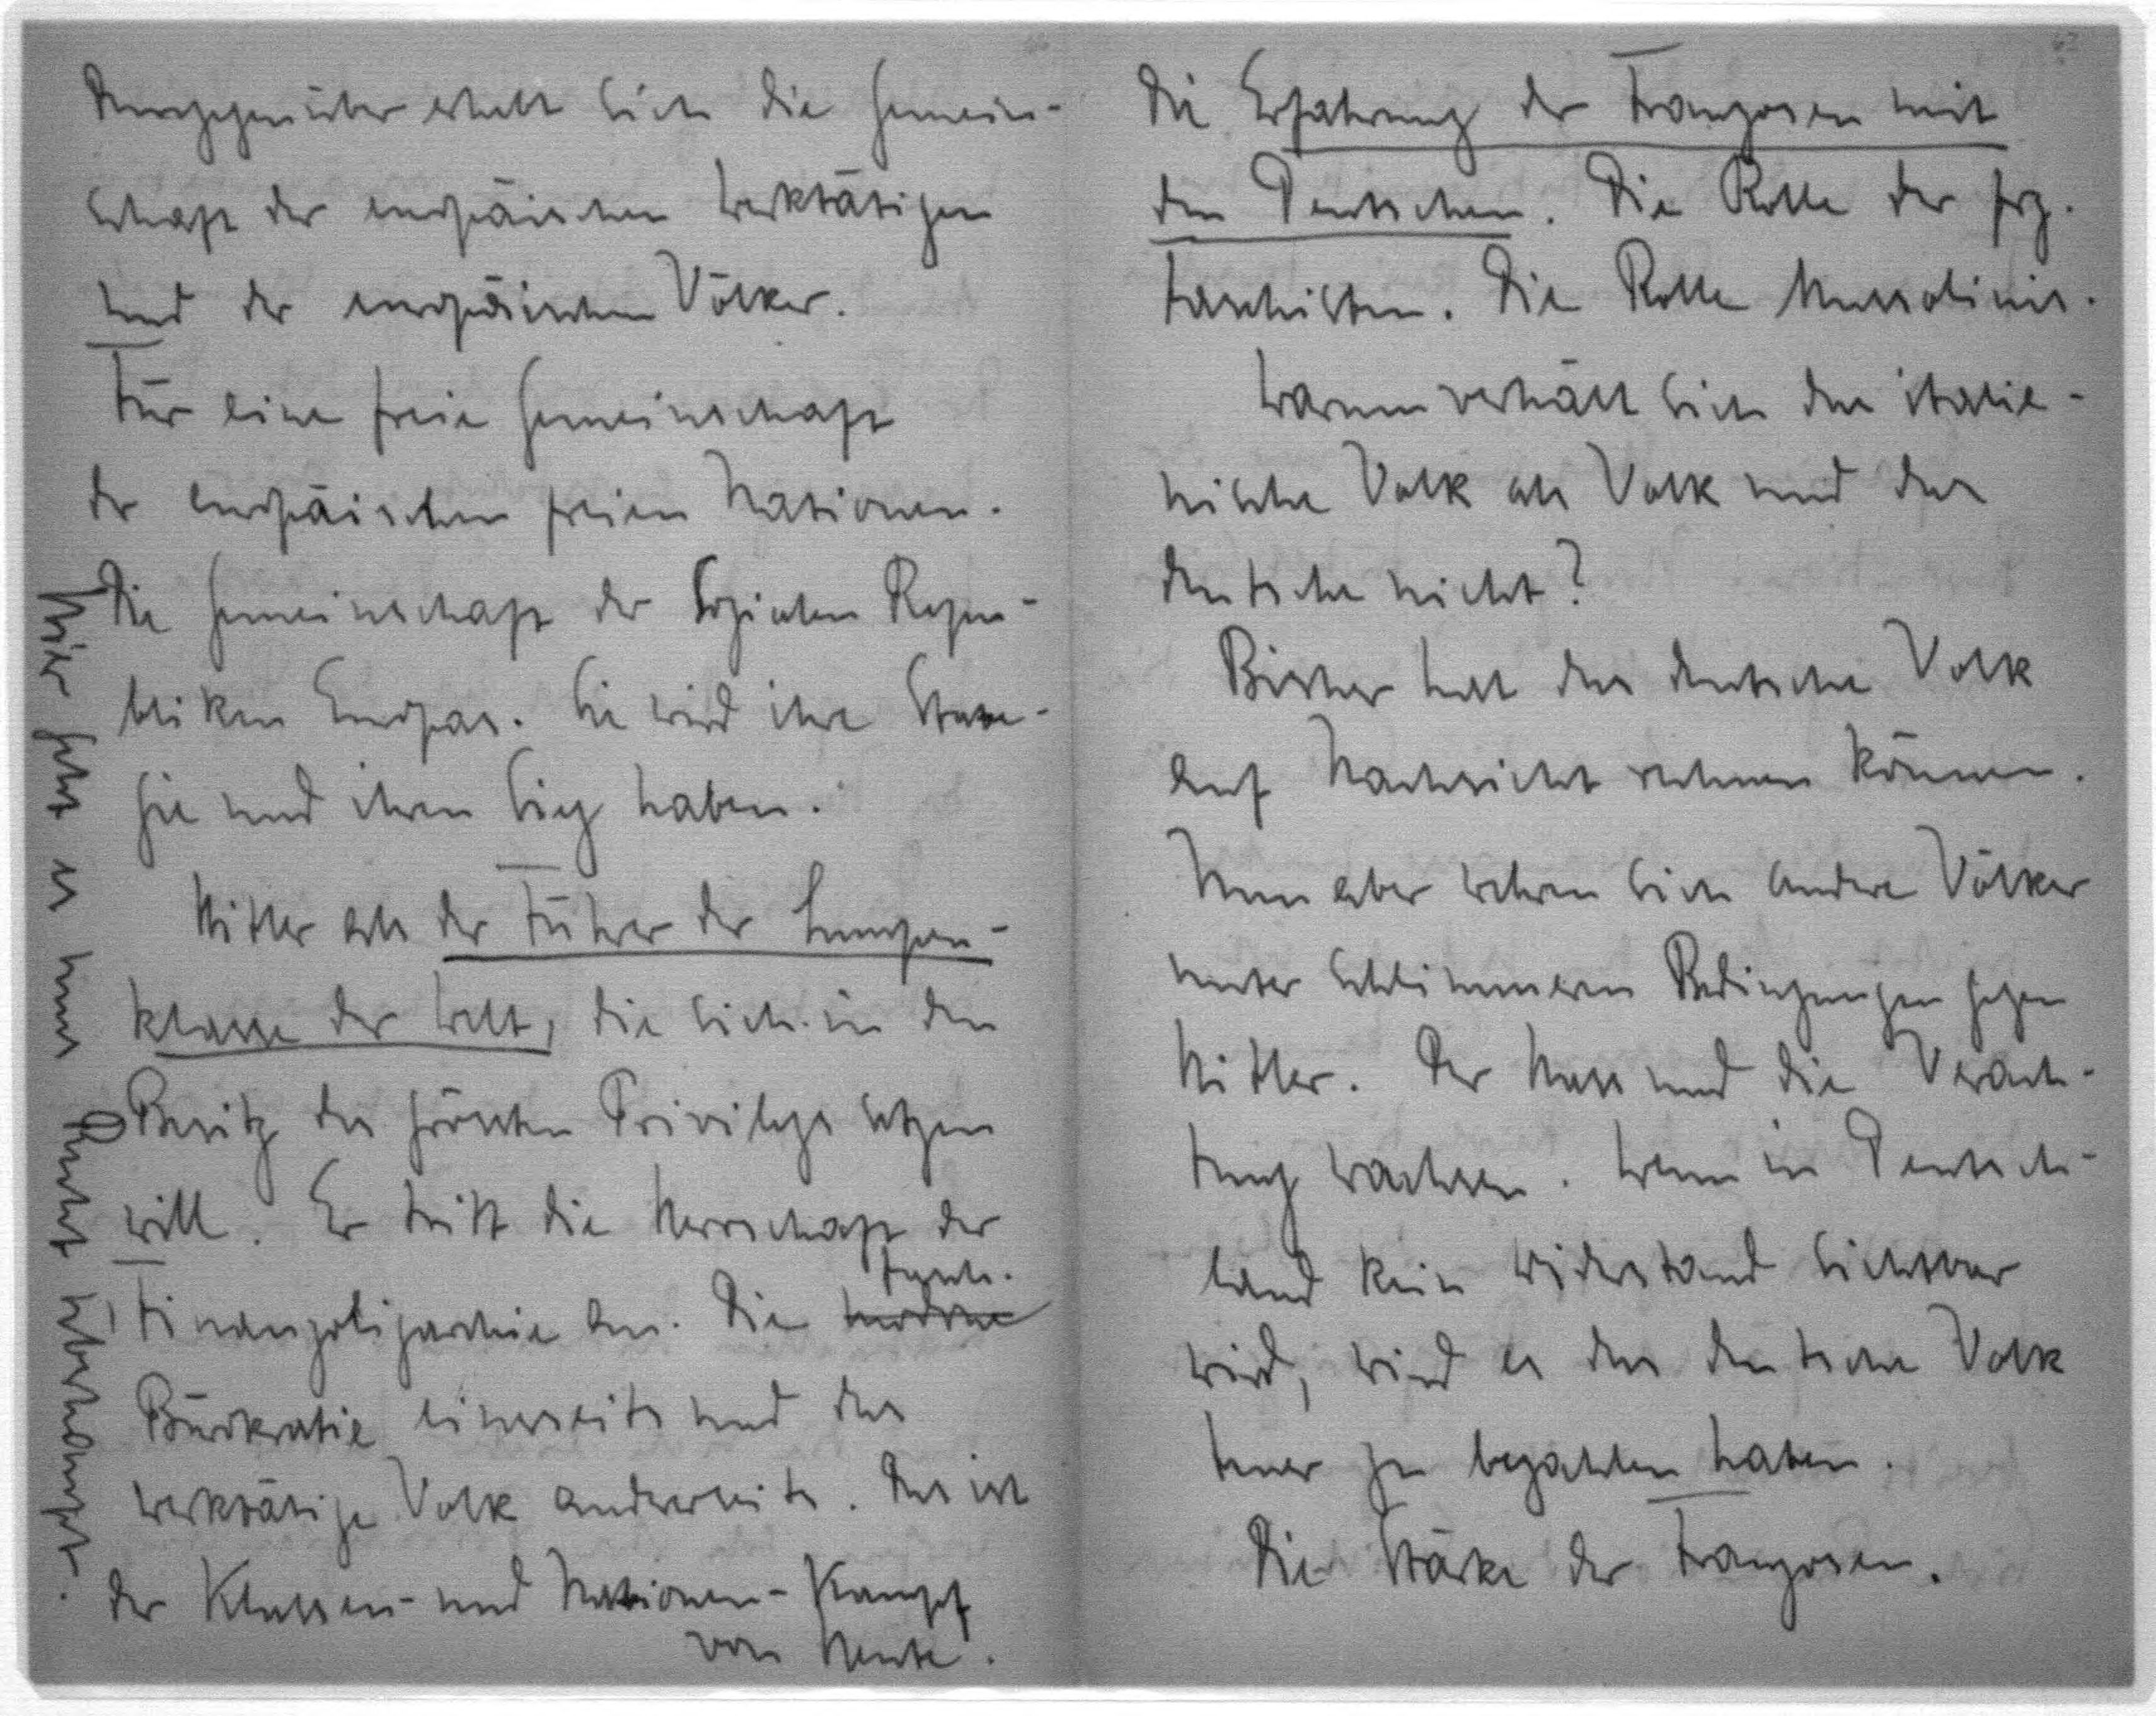 Demgegenüber erhebt sich die Gemein-
schaft der europäischen Werktätigen
und der europäischen Völker.
Für eine freie Gemeinschaft
der europäischen freien Nationen.
Die Gemeinschaft der Sozialen Repu-
bliken Europas. Sie wird ihre Strate-
gie und ihren Sieg haben.
Hitler als der Führer der Lumpen-
klasse der Welt, die sich in den
Besitz des grössten Privilegs setzen
will. Er tritt die Herrschaft der
Finanzoligarchie an. Die moderne
Bürokratie einerseits und das
werktätige Volk anderseits. Das ist
der Klassen- und Nationen-Kampf
von heute.
Hier geht es ums Recht überhaupt.
Die Erfahrung der Franzosen mit
den Deutschen. Die Rolle der frz.
Faschisten. Die Rolle Mussolinis.
Warum verhält sich das italie-
nische Volk als Volk und das
deutsche nicht?
Bisher hat das deutsche Volk
auf Nachsicht rechnen können.
Nun aber wehren sich andere Völker
unter schlimmeren Bedingungen gegen
Hitler. Der Hass und die Verach-
tung wachsen. Wenn in Deutsch-
land kein Widerstand sichtbar
wird, wird es das deutsche Volk
teuer zu bezahlen haben.
Die Stärke der Franzosen.